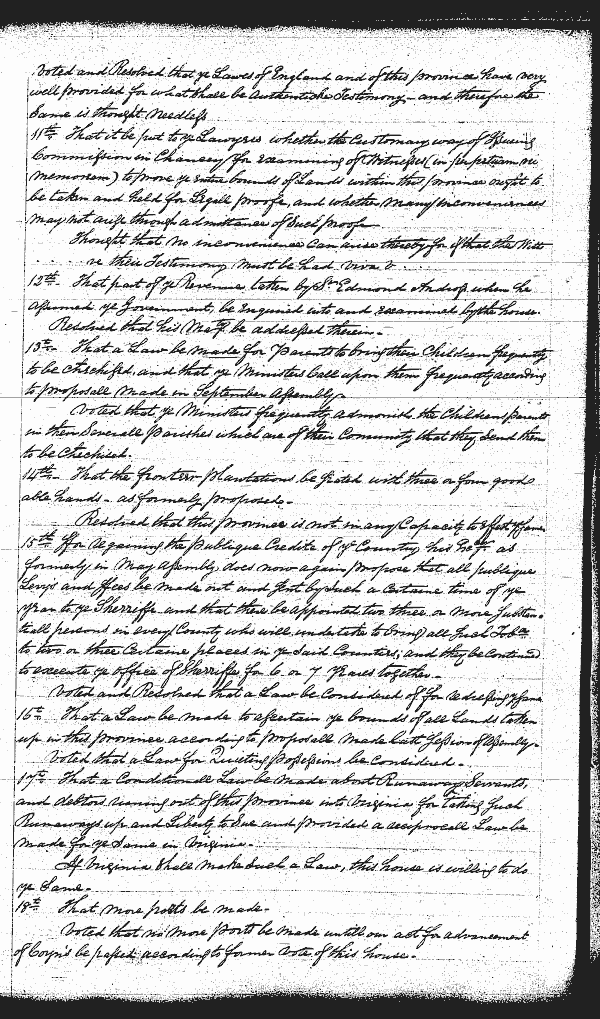 Voted and Resolved that ye Lawes of England and of this province have very
well provided for what shall be Authenticke Testimony - and therefore the
Same is thought Needless
11th That it be put to ye Lawyers whether the Customary way of Issuing
Commission in Chancery for examining of Witnesses (in perpetuam rei
memoriam) to prove ye bounds of Lands within this province ought to
be taken and held for Legall proofe, and whether many inconveniences
may not arise through admittance of Such proofe
Thought that no inconvenience Can arise thereby for if that the Witt
re their Testimony must be had viva v
12th That part of ye Revenue taken by Sr Edmond Andros when he
assumed ye Government, be Enquired into and examined by the house.
Resolved that his Maty be addressed therein.
13th That a Law be made for Parents to bring their Children frequently
to be Chechised, and that ye Ministers Call upon them frequently according
to proposall made in September Assembly.
Voted that ye Ministers frequently admonish the Children's Parents
in their Severall Parishes which are of their Comunity that they Send them
to be Chechised.
14th That the frontier Plantations be Seated with three or four good
able hands - as formerly proposed.
Resolved that this province is not in any Capacity to Effect ye Same
15th ffor regaining the Publique Credite of ye Country his Exy as
formerly in May Assembly does now again propose that all publique
Levys and ffees be made out and by Such a Certaine time of ye
year to ye Sherriffe and that there be appointed two three or more Substan-
tiall persons in every County who will undertake to bring all Such Tobco
to two or three Certaine places in ye Said Countys, and they be Continued
to execute ye office of Sherriffe for 6 or 7 years together.
Voted and Resolved that a Law be Considered of for redressing ye Same
16th That a Law be made to ascertain ye bounds of all Lands taken
up in this Province according to proposall made last Session of Assembly.
Voted that a Law for Quieting Possessions be Considered.
17th That a Conditionall Law be made about Runaway Servants,
and debtors runing out of this province into Virginia for taking Such
Runaways up and Liberty to Sue and provided a reciprocall Law be
made for ye Same in Virginia.
If Virginia Shall make Such a Law, this house is willing to do
ye Same.
18th That more ports be made.
Voted that no more ports be made untill our act for advancement
of Coyns be passed according to former Vote of this house.